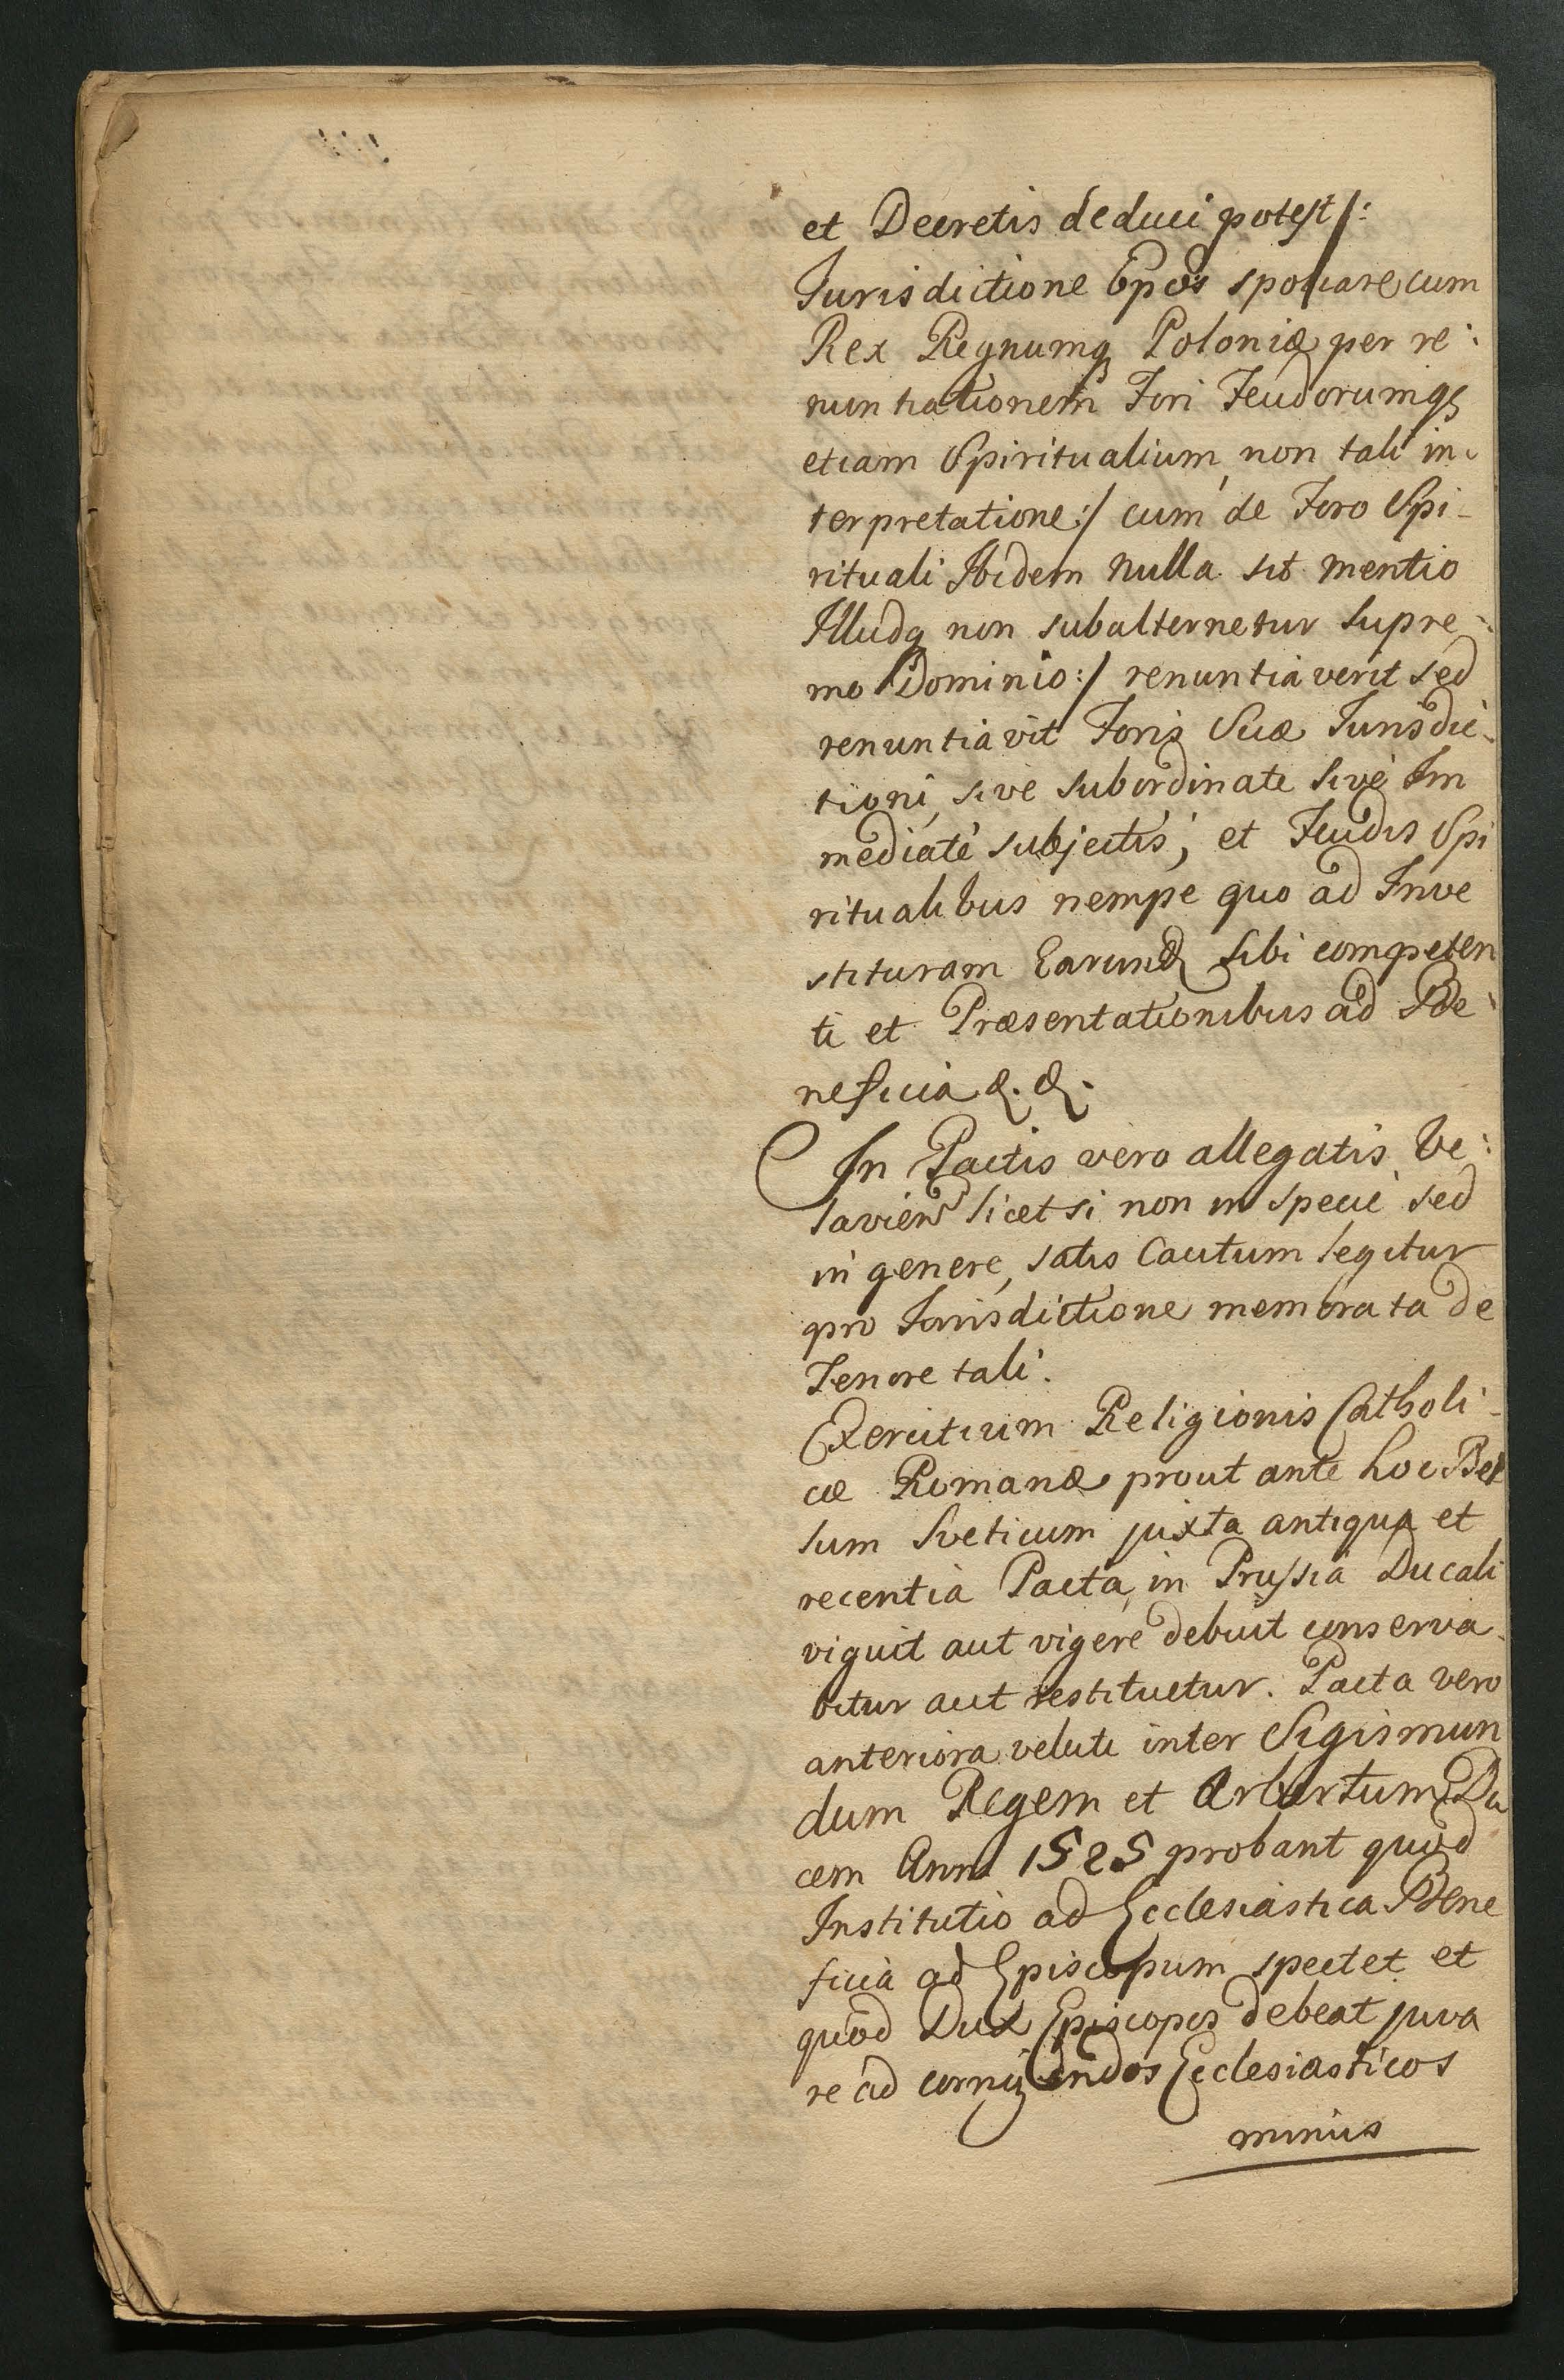 et Decretis deduci potest/:
Jurisdictione Epos spoliare cum
Rex Regnumq Poloniæ per re:
nuntiationem Fori Feudorumq
etiam Spiritualium, non tali in:
terpretatione:/ cum de Foro Spi-
rituali Ibidem nulla sit mentio
Illudq non subalternetur supre-
mo Dominio:/ renuntiaverit sed
renuntiavit Foris Suæ Jurisdic-
tioni, sive subordinate sive Im
mediate subjectis, et Feudis Spi
ritualibus nempe quo ad Inve
stituram Earund sibi competen
ti et Præsentationibus ad Be:
neficia &. &.
In Pactis vero allegatis Ve:
lavien licet si non in specie sed
in genere, satis Cautum legitur
pro Jurisdictione memorata de
Tenore tali.
Exercitium Religionis Catholi-
cæ Romanæ prout ante hoc Bel
lum Sveticum juxta antiqua et
recentia Pacta, in Prussia Ducali
viguit aut vigere debuit conserva-
bitur aut restituetur. Pacta vero
anteriora veluti inter Sigismun
dum Regem et Arbertum Du
cem Anno 1525 probant quod
Institutio ad Ecclesiastica Bene
ficia ad Episcopum spectet et
quod Dux Episcopos debeat juva
re ad corrigendos Ecclesiasticos
minus